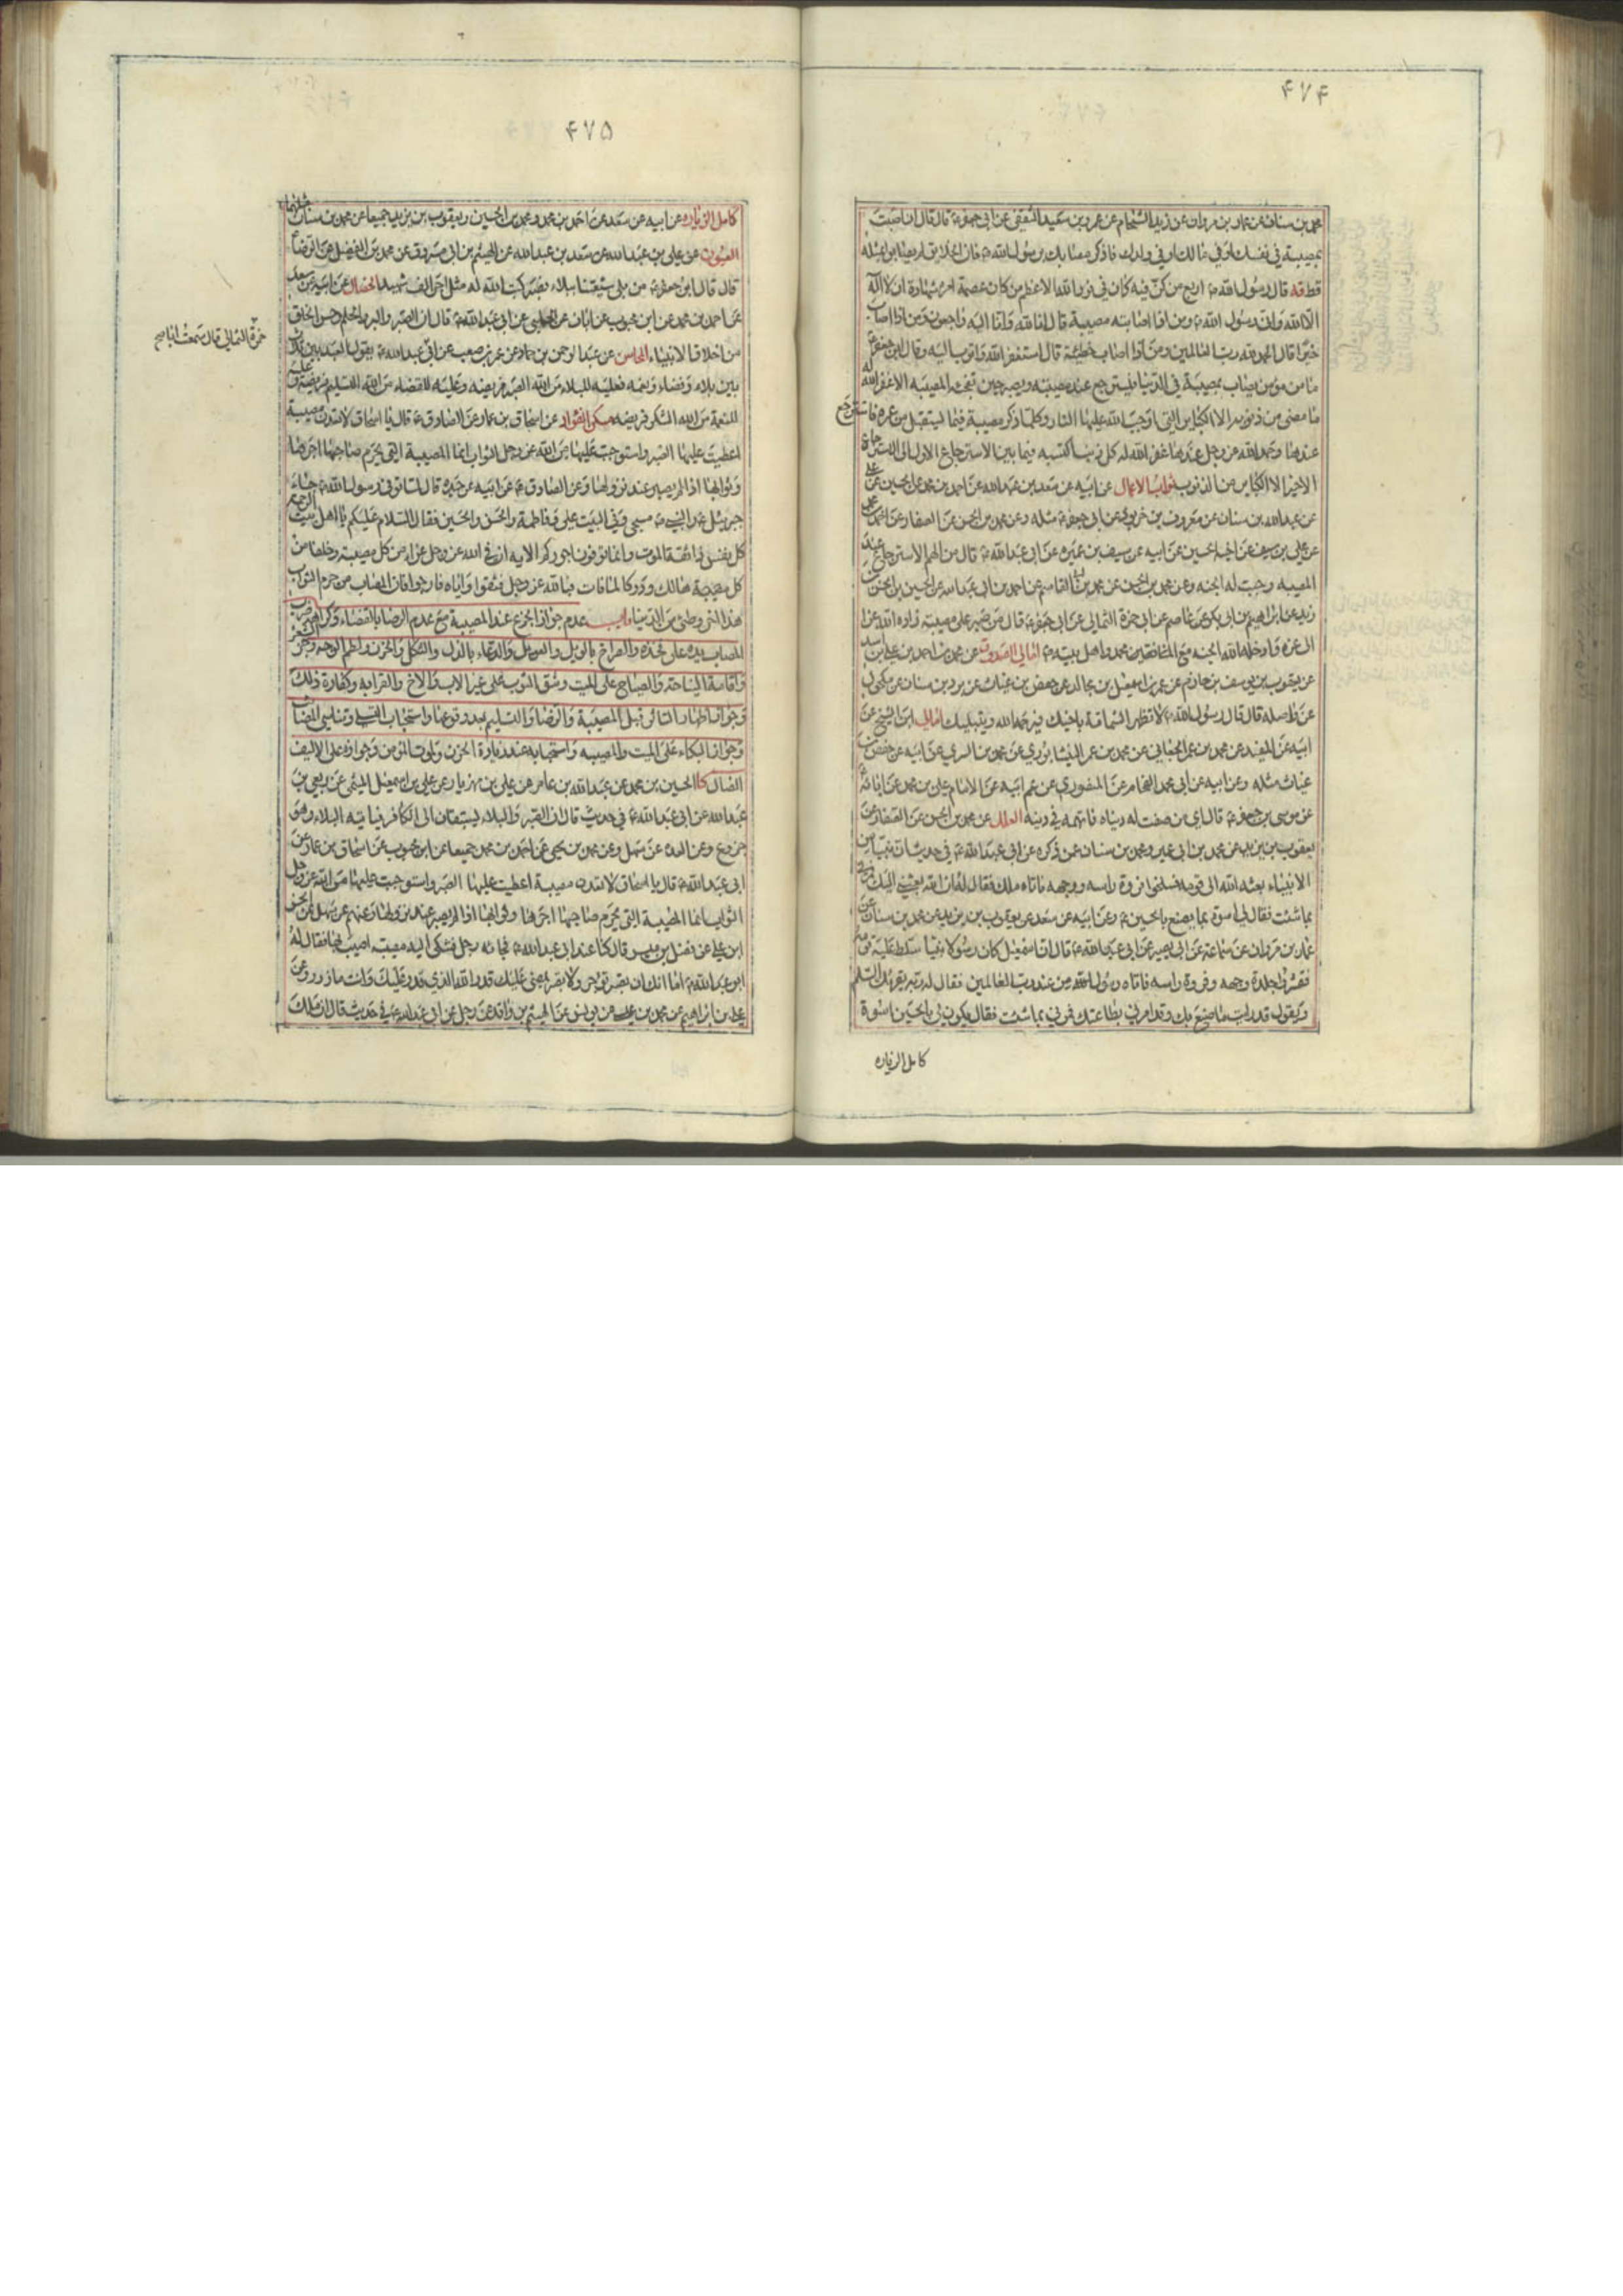 ۴۷۴
محمد بن سنان عن عمار بن مروان عن زيد الشحام عن عمرو بن سعيد الثقفي عن ابي جعفر ع قال قال ان اصبت
بمصيبة في نفسك او في مالك او في ولدك فاذكر مصابك برسول الله ص فان الخلائق لم يصابوا بمثله
قط قال رسول الله ص اربع من كن فيه كان في نور الله الاعظم من كان عصمة امره شهادة ان لا اله
الا الله وان رسول الله ومن اذا اصابته مصيبة قال انا لله وانا اليه راجعون ومن اذا اصاب
خيرا قال الحمد لله رب العالمين ومن اذا اصاب خطيئة قال استغفر الله واتوب اليه وقال ابو جعفر ع
ما من مؤمن يصاب بمصيبة في الدنيا فيسترجع عند مصيبته ويصبر حين تفجئه المصيبه الا غفر الله له
ما مضى من ذنوبه الا الكبائر التي اوجب الله عليها النار وكلما ذكر مصيبة فيما يستقبل من عمره فاسترجع
عندها وحمد الله عز وجل عندها غفر الله له كل ذنب اكتسبه فيما بين الاسترجاع الاول الى الاسترجاع
الاخير الا الكبائر من الذنوب ثواب الاعمال عن ابيه عن سعد بن عبد الله عن احمد بن محمد عن الحسين عن علي
عن عبد الله بن سنان عن معروف بن خربوذ عن ابي جعفر ع مثله وعن محمد بن الحسن عن الصفار عن احمد
عن علي بن سيف عن اخيه الحسين عن ابيه عن سيف بن عميره عن ابي عبد الله ع قال من الهم الاسترجاع عند
المصيبه وجبت له الجنه وعن محمد بن الحسن عن محمد بن القاسم عن احمد بن ابي عبد الله عن الحسين بن الحسن بن
زيد عن ابراهيم بن ابي بكر عن عاصم عن ابي حمزة الثمالي عن ابي جعفر ع قال من صبر على مصيبته زاده الله عزا
الى عزه وادخله الله الجنه مع محمد واهل بيته ع امالي الصدوق عن محمد بن احمد بن علي بن اسد
عن يعقوب بن يوسف بن حازم عن عمر بن اسمعيل بن مجالد عن حفص بن غياث عن برد بن سنان عن مكحول
عن واصله قال قال رسول الله ص لا تظهر الشماتة باخيك فيرحمه الله ويبتليك امالي ابن الشيخ عن
ابيه عن المفيد عن محمد بن عمر الجعابي عن محمد بن عمر النيشابوري عن محمد بن السري عن ابيه عن حفص بن
غياث مثله وعن ابيه عن ابي محمد الفحام عن المنصوري عن عم ابيه عن الامام علي بن محمد عن ابائه
عن موسى بن جعفر ع قال اي من صفت له دنياه فاتهمه في دينه العلل عن محمد بن الحسن عن الصفار عن
يعقوب بن يزيد عن محمد بن ابي عمير ومحمد بن سنان عمن ذكره عن ابي عبد الله ع في حديث ان نبيا من
الانبياء بعثه الله الى قومه فسلخوا فروة راسه ووجهه فاتاه ملك فقال له ان الله بعثني اليك فمرني
بما شئت فقال لي اسوة بما يصنع بالحسين ع وعن ابيه عن سعد عن يعقوب بن يزيد عن محمد بن سنان عن
عمار بن مروان عن سماعة عن ابي بصير عن ابي عبد الله ع قال ان اسمعيل كان رسولا نبيا سلط عليه قومه
فقشروا جلدة وجهه وفروة راسه فاتاه رسول الله من عند رب العالمين فقال له ربه يقرئك السلام
ويقول قد رايت ما صنع بك وقد امرني بطاعتك فمرني بما شئت فقال يكون لي بالحسين اسوة
كامل الزياره
۴۷۵
كامل الزياره عن ابيه عن سعد عن احمد بن محمد ومحمد بن الحسين ويعقوب بن يزيد جميعا عن محمد بن سنان مثلهما
العيون عن علي بن عبد الله عن سعد بن عبد الله عن الهيثم بن ابي مسروق عن محمد بن الفضيل عن الرضا ع
قال قال ابو جعفر ع من بلي شيعتنا ببلاء فصبر كتب الله له مثل اجر الف شهيد الخصال عن ابيه عن سعد
عن احمد بن محمد عن ابن محبوب عن ابان عن الحلبي عن ابي عبد الله ع قال ان الصبر والبر والحلم وحسن الخلق
من اخلاق الانبياء المحاسن عن عبد الرحمن بن حماد عن عمر بن مصعب عن ابي
حمزة الثمالي قال سمعت ابا
عبد الله ع يقول العبد بين ثلاث
بين بلاء وقضاء ونعمه فعليه للبلاء من الله الصبر فريضه وعليه للقضاء من الله التسليم فريضة وعليه
للنعمة من الله الشكر فريضه مسكن الفواد عن اسحاق بن عمار عن الصادق ع قال يا اسحاق لا تعدن مصيبة
اعطيت عليها الصبر واستوجبت عليها من الله عز وجل الثواب انما المصيبة التي يحرم صاحبها اجرها
وثوابها اذا لم يصبر عند نزولها وعن الصادق ع عن ابيه عن جده قال لما توفي رسول الله ص جاء
جبرئيل والنبي ص مسجى وفي البيت علي وفاطمة والحسن والحسين فقال السلام عليكم يا اهل بيت الرحمة
كل نفس ذائقة الموت وانما توفون اجوركم الايه ان في الله عز وجل عزاء من كل مصيبة وخلفا من
كل هالك ودركا لما فات فبالله عز وجل فثقوا واياه فارجوا فان المصاب من حرم الثواب
هذا اخر وطئي من الدنيا باب عدم جواز الجزع عند المصيبة مع عدم الرضا بالقضاء وكراهه ضرب
المصاب يده على فخذه والصراخ بالويل والعويل والدعاء بالذل والثكل والحزن ولطم الوجه وجز الشعر
واقامة النياحة والصياح على الميت وشق الثوب على غير الاب والاخ والقرابه وكفارة ذلك
وجواز اظهار التاثر قبل المصيبة والرضا والتسليم بعد وقوعها واستحباب وتناسي المصاب
وجواز البكاء على الميت والمصيبه واستحبابه عند زيادة الحزن ولموت المؤمن وجوازه على الاليف
الضال كا الحسين بن محمد عن عبد الله بن عامر عن علي بن مهزيار عن علي بن اسمعيل الميثمي عن ربعي بن
عبد الله عن ابي عبد الله ع في حديث قال ان الصبر والبلاء يستبقان الى الكافر فياتيه البلاء وهو
جزوع وعن العده عن سهل وعن محمد بن يحيى عن احمد بن محمد جميعا عن ابن محبوب عن اسحاق بن عمار عن
ابي عبد الله ع قال يا اسحاق لا تعدن مصيبة اعطيت عليها الصبر واستوجبت عليها من الله عز وجل
الثواب انما المصيبة التي يحرم صاحبها اجرها وثوابها اذا لم يصبر عند نزولها وعنهم عن سهل عن الحسن
ابن علي عن فضل بن ميسر قال كنا عند ابي عبد الله ع فجائه رجل فشكى اليه مصيبة اصيب بها فقال له
ابو عبد الله ع اما انك ان تصبر توجر ولا تصبر يمضي عليك قدر الله الذي قدر عليك وانت مازور وعن
علي بن ابراهيم عن محمد بن عيسى عن يونس عن الهيثم بن واقد عن رجل عن ابي عبد الله ع في حديث قال ان ملك